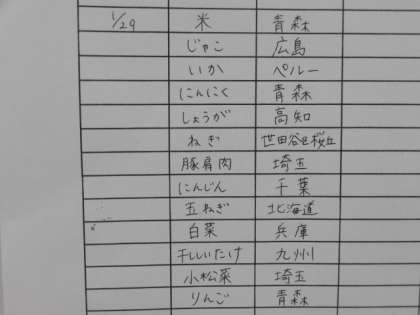 1/29 米 青森
じゃこ 広島
いか ペルー
にんにく 青森
しょうが 高知
ねぎ 世田谷区桜丘
豚肩肉 埼玉
にんじん 千葉
玉ねぎ 北海道
白菜 兵庫
干ししいたけ 九州
小松菜 埼玉
りんご 青森